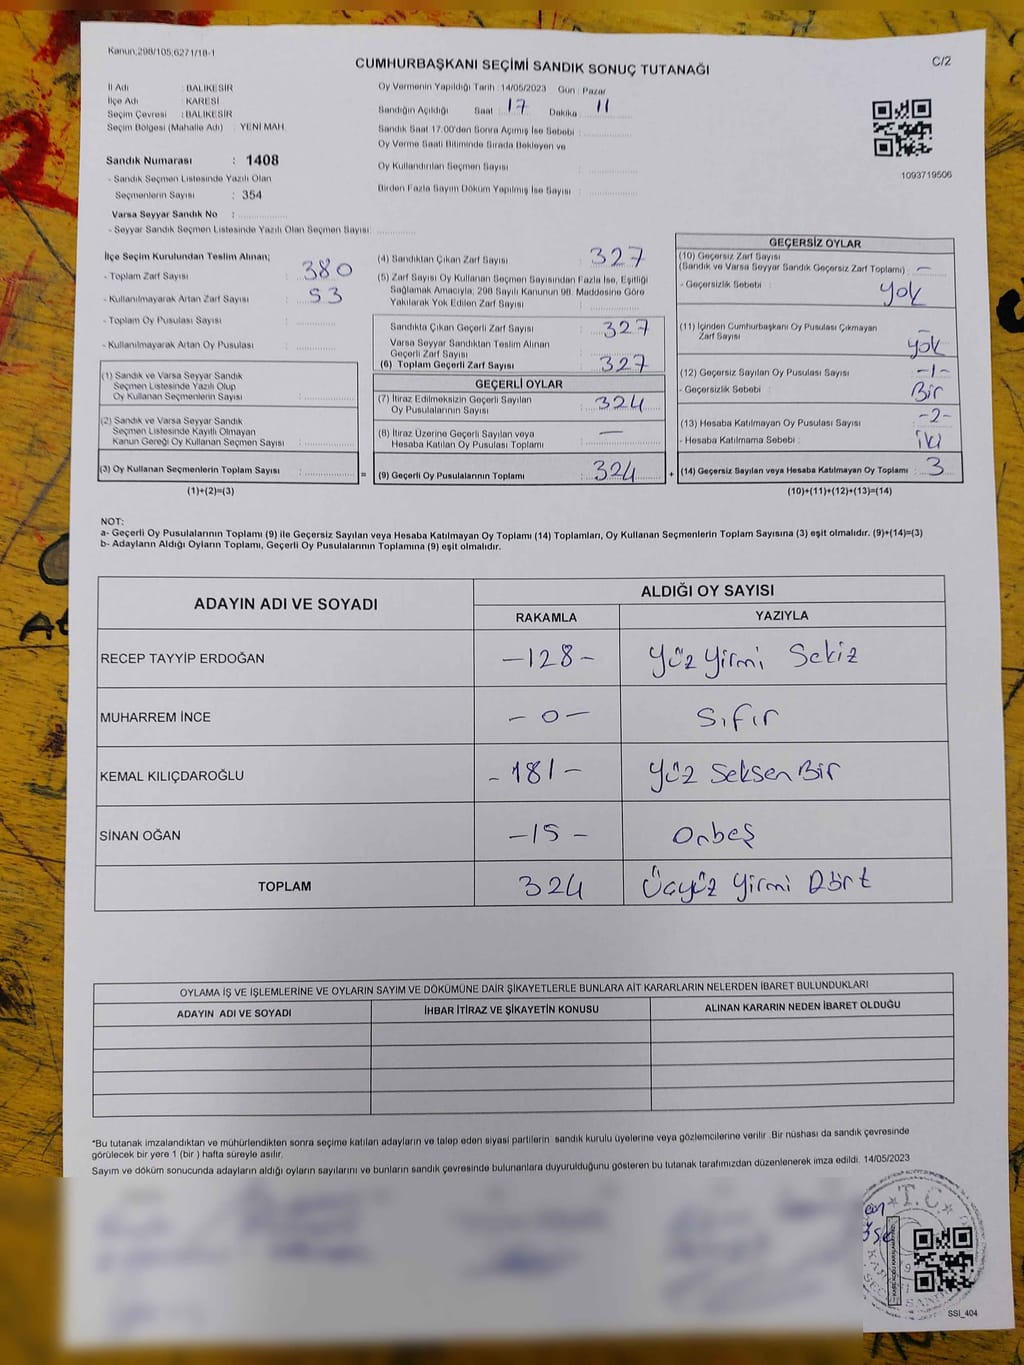 Kanun.298/105,6271/18-1
CUMHURBAŞKANI SEÇİMİ SANDIK SONUÇ TUTANAĞI
C/2
İl Adı : BALIKESİR
İlçe Adı : KARESİ
Seçim Çevresi : BALIKESİR
Seçim Bölgesi (Mahalle Adı) : YENİ MAH.
Oy Vermenin Yapıldığı Tarih : 14/05/2023 Gün : Pazar
Sandığın Açıldığı Saat : 17 Dakika : 11
Sandık Saat 17:00'den Sonra Açımış İse Sebebi :
Oy Verme Saati Bitiminde Sırada Bekleyen ve
Oy Kullandırılan Seçmen Sayısı :
Birden Fazla Sayım Döküm Yapılmış İse Sayısı :
1093719506
Sandık Numarası : 1408
- Sandık Seçmen Listesinde Yazılı Olan
Seçmenlerin Sayısı : 354
Varsa Seyyar Sandık No :
- Seyyar Sandık Seçmen Listesinde Yazılı Olan Seçmen Sayısı:
İlçe Seçim Kurulundan Teslim Alınan;
- Toplam Zarf Sayısı : 380
- Kullanılmayarak Artan Zarf Sayısı : 53
- Toplam Oy Pusulası Sayısı :
- Kullanılmayarak Artan Oy Pusulası :
(1) Sandık ve Varsa Seyyar Sandık
Seçmen Listesinde Yazılı Olup
Oy Kullanan Seçmenlerin Sayısı :
(2) Sandık ve Varsa Seyyar Sandık
Seçmen Listesinde Kayıtlı Olmayan
Kanun Gereği Oy Kullanan Seçmen Sayısı :
(3) Oy Kullanan Seçmenlerin Toplam Sayısı : =
(1)+(2)=(3)
(4) Sandıktan Çıkan Zarf Sayısı : 327
(5) Zarf Sayısı Oy Kullanan Seçmen Sayısından Fazla İse, Eşitliği
Sağlamak Amacıyla; 298 Sayılı Kanunun 98. Maddesine Göre
Yakılarak Yok Edilen Zarf Sayısı :
Sandıkta Çıkan Geçerli Zarf Sayısı : 327
Varsa Seyyar Sandıktan Teslim Alınan
Geçerli Zarf Sayısı :
(6) Toplam Geçerli Zarf Sayısı : 327
GEÇERLİ OYLAR
(7) İtiraz Edilmeksizin Geçerli Sayılan
Oy Pusulalarının Sayısı : 324
(8) İtiraz Üzerine Geçerli Sayılan veya
Hesaba Katılan Oy Pusulaları Toplamı : —
(9) Geçerli Oy Pusulalarının Toplamı : 324 +
GEÇERSİZ OYLAR
(10) Geçersiz Zarf Sayısı
(Sandık ve Varsa Seyyar Sandık Geçersiz Zarf Toplamı) : —
- Geçersizlik Sebebi : yok
(11) İçinden Cumhurbaşkanı Oy Pusulası Çıkmayan
Zarf Sayısı : — yok
(12) Geçersiz Sayılan Oy Pusulası Sayısı : -1-
- Geçersizlik Sebebi : Bir
(13) Hesaba Katılmayan Oy Pusulası Sayısı : -2-
- Hesaba Katılmama Sebebi : iki
(14) Geçersiz Sayılan veya Hesaba Katılmayan Oy Toplamı : 3
(10)+(11)+(12)+(13)=(14)
NOT:
a- Geçerli Oy Pusulalarının Toplamı (9) ile Geçersiz Sayılan veya Hesaba Katılmayan Oy Toplamı (14) Toplamları, Oy Kullanan Seçmenlerin Toplam Sayısına (3) eşit olmalıdır. (9)+(14)=(3)
b- Adayların Aldığı Oyların Toplamı, Geçerli Oy Pusulalarının Toplamına (9) eşit olmalıdır.
ADAYIN ADI VE SOYADI ALDIĞI OY SAYISI
RAKAMLA YAZIYLA
RECEP TAYYİP ERDOĞAN -128- Yüz Yirmi Sekiz
MUHARREM İNCE -0- Sıfır
KEMAL KILIÇDAROĞLU -181- Yüz Seksen Bir
SİNAN OĞAN -15- Onbeş
TOPLAM 324 Üçyüz Yirmi Dört
OYLAMA İŞ VE İŞLEMLERİNE VE OYLARIN SAYIM VE DÖKÜMÜNE DAİR ŞİKAYETLERLE BUNLARA AİT KARARLARIN NELERDEN İBARET BULUNDUKLARI
ADAYIN ADI VE SOYADI İHBAR İTİRAZ VE ŞİKAYETİN KONUSU ALINAN KARARIN NEDEN İBARET OLDUĞU
*Bu tutanak imzalandıktan ve mühürlendikten sonra seçime katılan adayların ve talep eden siyasi partilerin sandık kurulu üyelerine veya gözlemcilerine verilir .Bir nüshası da sandık çevresinde
görülecek bir yere 1 (bir ) hafta süreyle asılır.
Sayım ve döküm sonucunda adayların aldığı oyların sayılarını ve bunların sandık çevresinde bulunanlara duyurulduğunu gösteren bu tutanak tarafımızdan düzenlenerek imza edildi. 14/05/2023
T.C.
SSİ_404